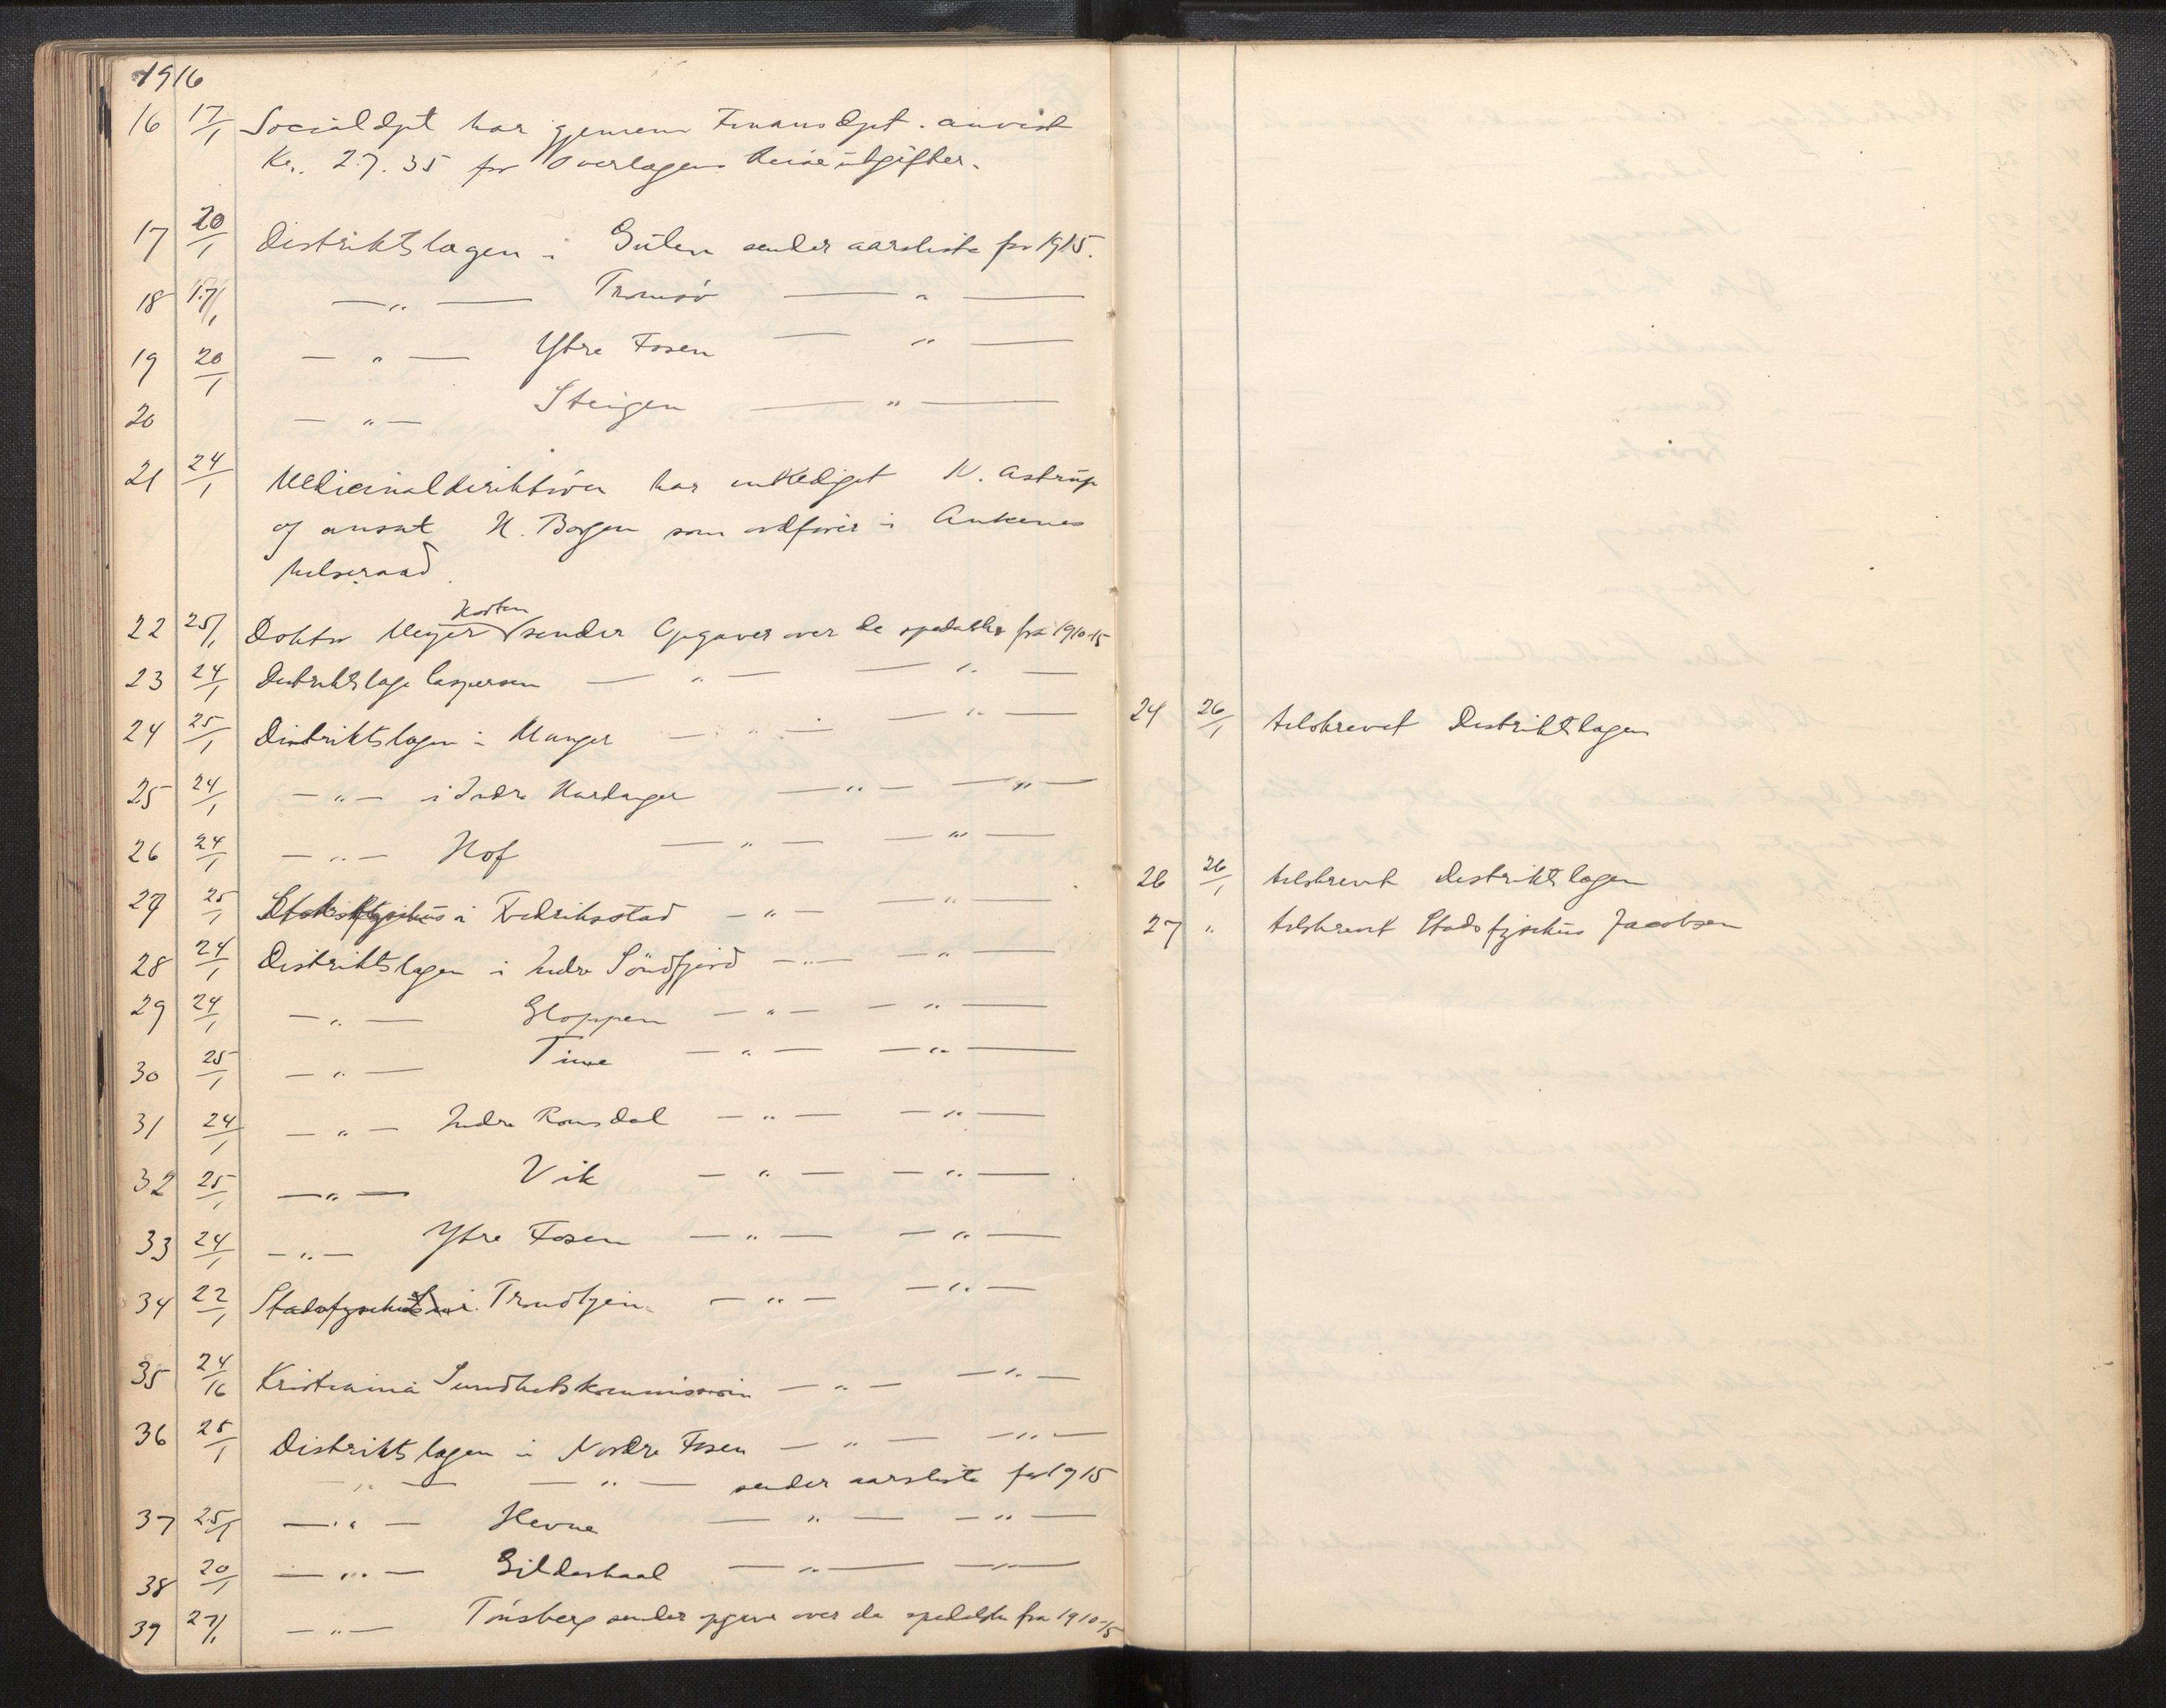 1916
16 17/1 Socialdpt har gjennem Finansdpt. anvist
Kr. 27.35 for Overlægens Reiseutgifter.
17 20/1 Distriktslægen i Gulen sender aarsliste for 1915.
18 17/1 — „ — Tromsö — „ —
19 20/1 — „ — Ytre Fosen — „ —
20 — „ — Steigen — „ —
21 24/1 Medicinaldirektören har entlediget K. Astrup
og ansat H. Borgen som ordförer i Ankenes
helseraad.
22 25/1 Doktor Meyer Horten sender Opgaver over de spedalske fra 1910-15
23 24/1 Distriktslæge Caspersen — „ — — „ —
24 25/1 Distriktslægen i Manger — „ — — „ —
25 24/1 — „ — i Indre Hardanger — „ — — „ —
26 24/1 — „ — Hof — „ — — „ —
27 25/1 i Fredriksstad — „ — — „ —
28 24/1 Distriktslægen i Indre Söndfjord — „ — — „ —
29 24/1 — „ — Gloppen — „ — — „ —
30 25/1 — „ — Time — „ — — „ —
31 24/1 — „ — Indre Romsdal — „ — — „ —
32 25/1 — „ — Vik — „ — — „ —
33 24/1 — „ — Ytre Fosen — „ — — „ —
34 22/1 Stadsfysikus i Trondhjem — „ — — „ —
35 24/16 Kristiania Sundhetskommission — „ — — „ —
36 25/1 Distriktslægen i Nordre Fosen — „ — — „ —
— „ — — „ — sender aarsliste for 1915
37 25/1 — „ — Hevne — „ — — „ —
38 20/1 — „ — Gildeskaal — „ — — „ —
39 27/1 — „ — Tönsberg sender opgave over de spedalske fra 1910-15
24 26/1 tilskrevet Distriktslægen
26 26/1 tilskrevet distriktslægen
27 „ tilskrevet Stadsfysikus Jacobsen